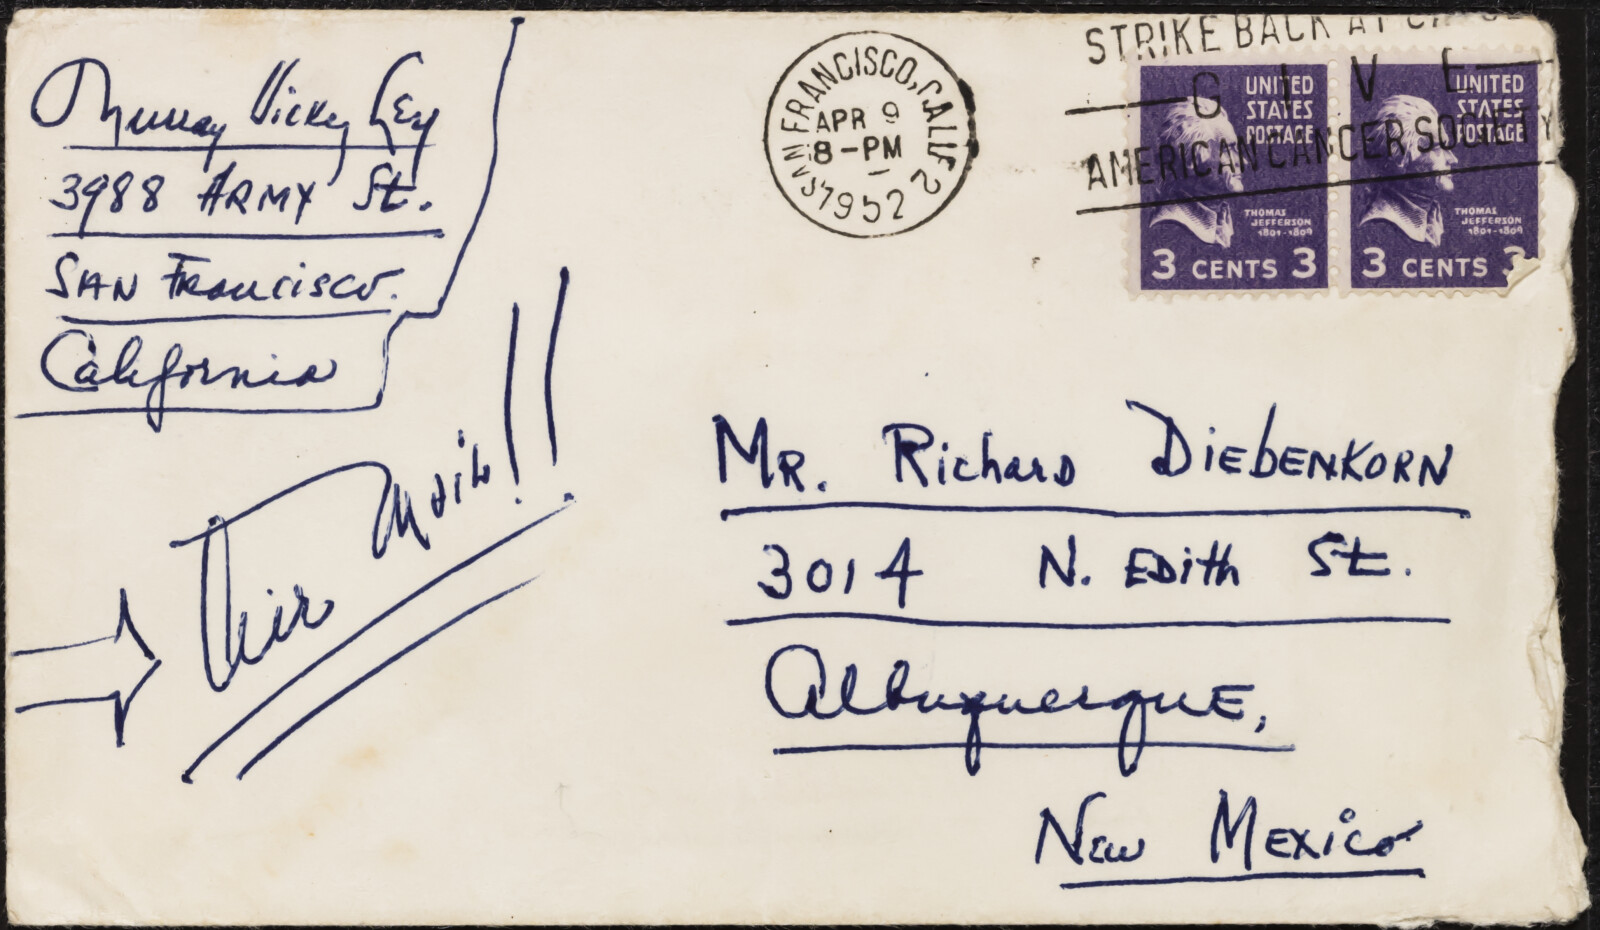 Murray Vicky Ley
3988 ARMY St.
SAN Francisco.
California
Air Mail!!
SAN FRANCISCO, CALIF. 2
APR 9
8-PM
1952
STRIKE BACK AT CANCER
GIVE
AMERICAN CANCER SOCIETY
UNITED
STATES
POSTAGE
THOMAS
JEFFERSON
1801-1809
3 CENTS 3
UNITED
STATES
POSTAGE
THOMAS
JEFFERSON
1801-1809
3 CENTS 3
MR. Richard DIEBENKORN
3014 N. EDith St.
AlbuquerquE,
New MExico